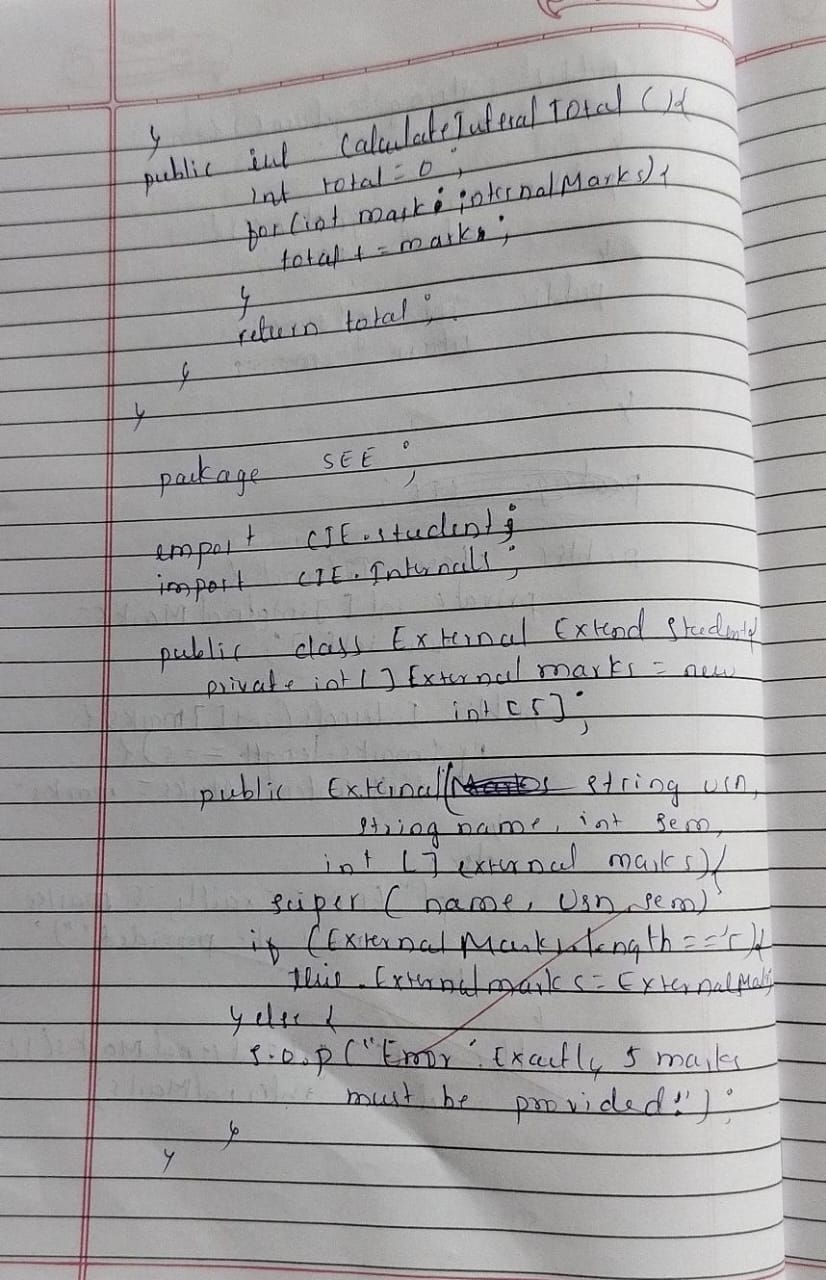 }
public int CalculateInteral Total () {
int total = 0 ;
for (int mark : internalMarks) {
total + = marks ;
}
return total ;
}
}
package SEE ;
import CIE.student ;
import CIE. Internals ;
public class External Extend Student {
private int [ ] External marks = new
int [5] ;
public External ( string usn,
string name, int sem,
int [ ] external marks) {
super ( name, usn, sem)
if (External Marks.length == 5) {
this . External marks = External Marks
} else {
S.O.P ("Error : Exactly 5 marks
must be provided!") ;
}
}